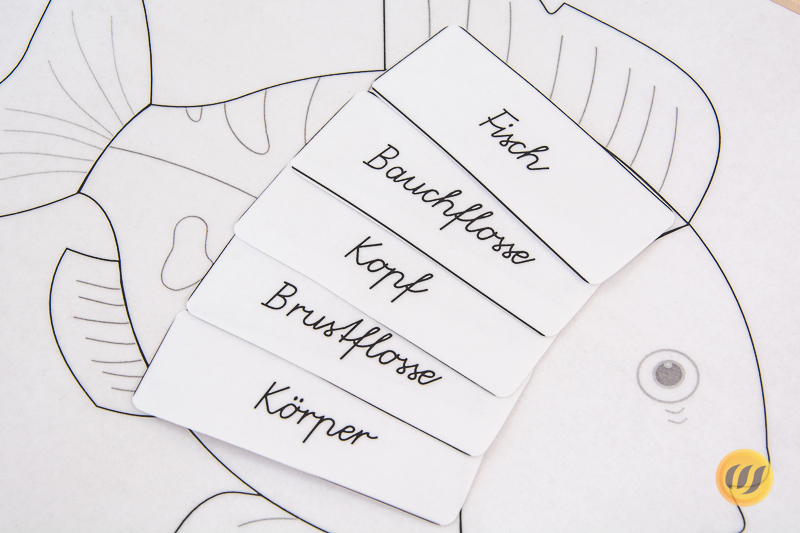 Fisch
Bauchflosse
Kopf
Brustflosse
Körper